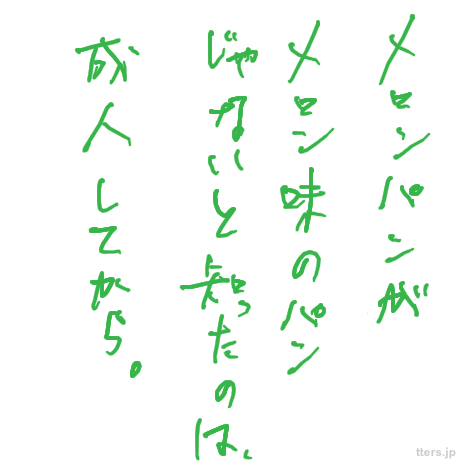 メロンパンが
メロン味のパン
じゃないと知ったのは、
成人してから。
tters.jp